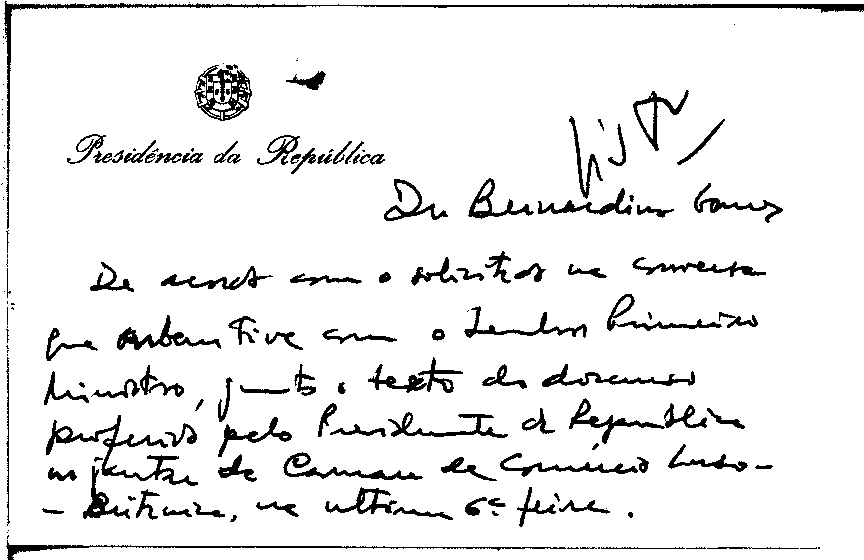 Presidência da República
Visto
Dr Bernardino Gomes
De acordo com o solicitado na conversa
que ontem tive com o Senhor Primeiro
Ministro, junto o texto do discurso
proferido pelo Presidente da República
no jantar da Camara de Comércio Luso-
- Britanica, na ultima 6ª feira.